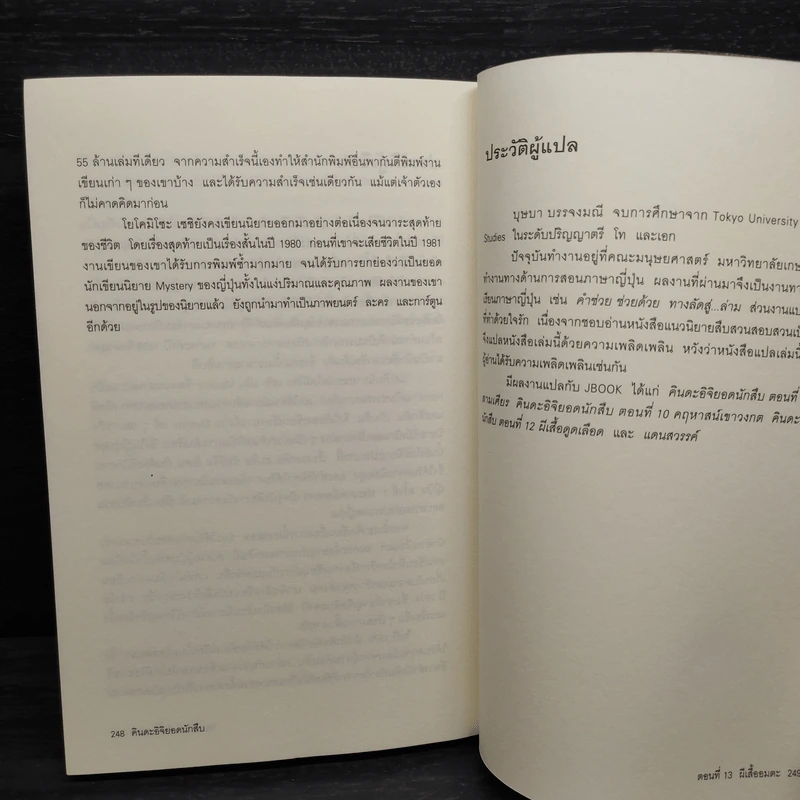 55 ล้านเล่มทีเดียว จากความสำเร็จนี้เองทำให้สำนักพิมพ์อื่นพากันตีพิมพ์งาน
เขียนเก่า ๆ ของเขาบ้าง และได้รับความสำเร็จเช่นเดียวกัน แม้แต่เจ้าตัวเอง
ก็ไม่คาดคิดมาก่อน
โยโคมิโซะ เซชิยังคงเขียนนิยายออกมาอย่างต่อเนื่องจนวาระสุดท้าย
ของชีวิต โดยเรื่องสุดท้ายเป็นเรื่องสั้นในปี 1980 ก่อนที่เขาจะเสียชีวิตในปี 1981
งานเขียนของเขาได้รับการพิมพ์ซ้ำมากมาย จนได้รับการยกย่องว่าเป็นยอด
นักเขียนนิยาย Mystery ของญี่ปุ่นทั้งในแง่ปริมาณและคุณภาพ ผลงานของเขา
นอกจากอยู่ในรูปของนิยายแล้ว ยังถูกนำมาทำเป็นภาพยนตร์ ละคร และการ์ตูน
อีกด้วย
248 คินดะอิจิยอดนักสืบ
ประวัติผู้แปล
บุษบา บรรจงมณี จบการศึกษาจาก Tokyo University
Studies ในระดับปริญญาตรี โท และเอก
ปัจจุบันทำงานอยู่ที่คณะมนุษยศาสตร์ มหาวิทยาลัยเกษ
ทำงานทางด้านการสอนภาษาญี่ปุ่น ผลงานที่ผ่านมาจึงเป็นงานทา
เรียนภาษาญี่ปุ่น เช่น คำช่วย ช่วยด้วย ทางลัดสู่...ล่าม ส่วนงานแป
ที่ทำด้วยใจรัก เนื่องจากชอบอ่านหนังสือแนวนิยายสืบสวนสอบสวนเป็
จึงแปลหนังสือเล่มนี้ด้วยความเพลิดเพลิน หวังว่าหนังสือแปลเล่มนี้
ผู้อ่านได้รับความเพลิดเพลินเช่นกัน
มีผลงานแปลกับ JBOOK ได้แก่ คินดะอิจิยอดนักสืบ ตอนที่
ตามเศียร คินดะอิจิยอดนักสืบ ตอนที่ 10 คฤหาสน์เขาวงกต คินดะ
นักสืบ ตอนที่ 12 ผีเสื้อดูดเลือด และ แดนสวรรค์
ตอนที่ 13 ผีเสื้ออมตะ 249